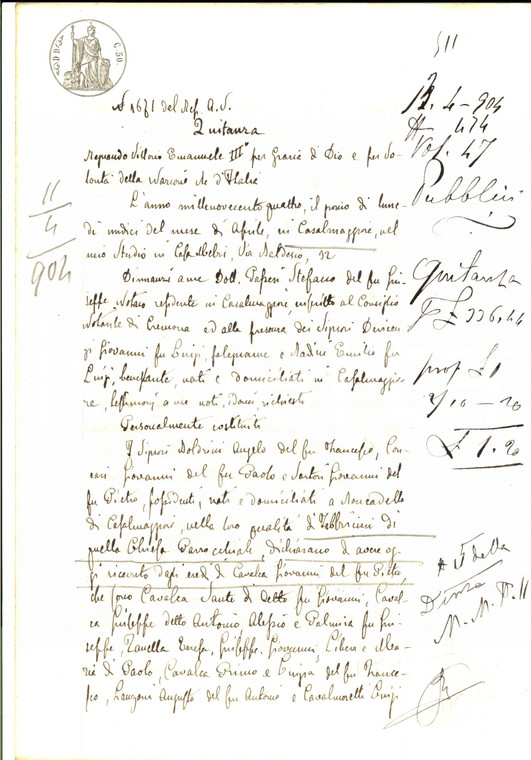 C. 50.
N 1671 del Rep. A. N.
Quitanza
Regnando Vittorio Emanuele III° per Grazia di Dio e per Vo-
lontà della Nazione Re d'Italia
L'anno millenovecento quattro, il giorno di lune-
dì undici del mese di Aprile, in Casalmaggiore, nel
mio Studio in Casa Via Baldesio, 32
Dinnanzi a me Dott. Stefano del fu Giu-
seppe, Notaro residente in Casalmaggiore, inscritto al Consiglio
Notarile di Cremona ed alla presenza dei Signori
Giovanni fu Luigi, falegname e Emilio fu
Luigi, benestante, nati e domiciliati in Casalmaggio-
re, testimoni a me noti, idonei, richiesti
Personalmente costituiti
I Signori Boldrini Angelo del fu Francesco, Con-
Giovanni del fu Paolo e Sartori Giovanni del
fu Pietro, possidenti, nati e domiciliati a Roncadello
di Casalmaggiore, nella loro qualità di Fabbricieri di
quella Chiesa Parrocchiale, dichiarano di avere og-
gi ricevuto dagli eredi di Cavalca Giovanni del fu Pietro,
che sono Cavalca Sante di detto fu Giovanni, Caval-
ca Giuseppe detto Antonio Alessio e Palmira fu Giu-
seppe, Teresa, Giuseppe, Giovanni, Libera e Ma-
ria di Paolo, Cavalca Primo e Luigia del fu France-
sco, Lanzoni Augusto del fu Antonio e Cavalmoretti Luigi
11
4
904
511
12. 4 - 904
# 474
Vol. 47
Pubblici
Quitanza
£ 336,44
prop £ 1
2/10 - 20
£ 1.20
# 5 della